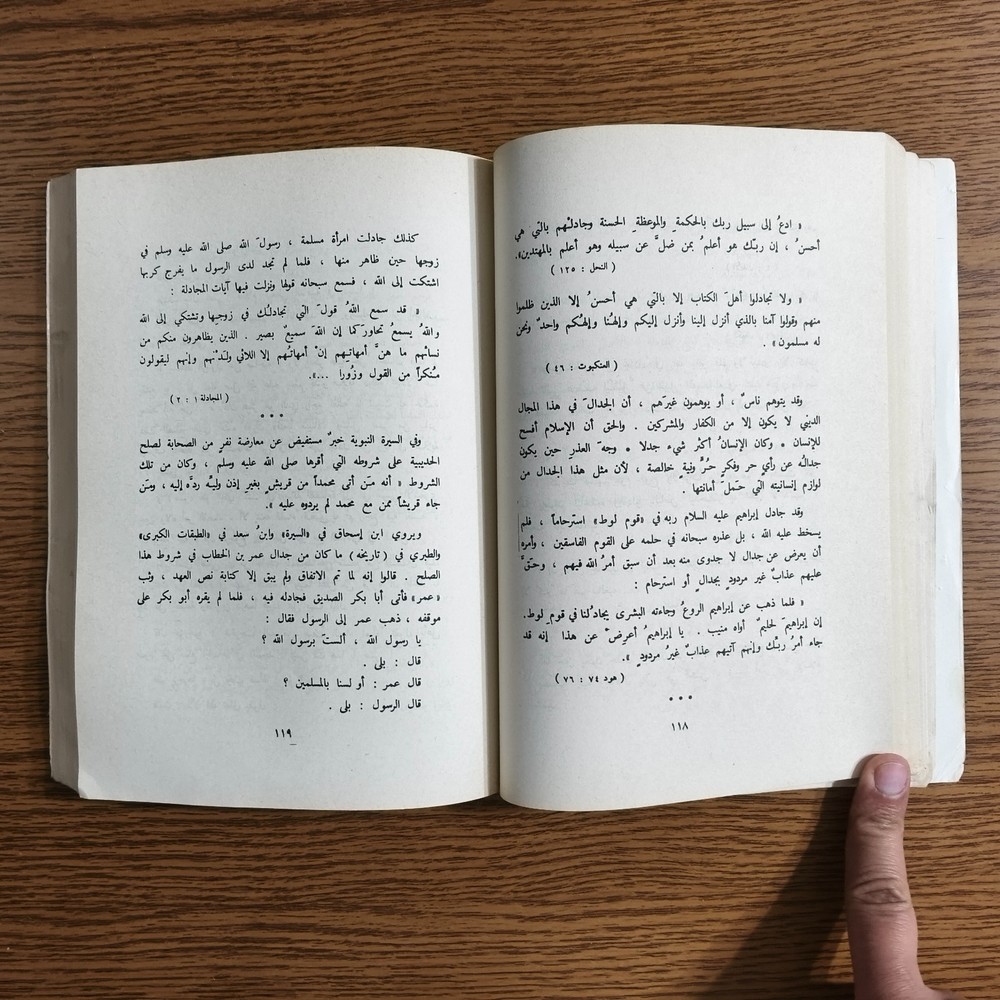 « ادعُ إلى سبيل ربك بالحكمةِ والموعظةِ الحسنة وجادلْهم بالتي هي
أحسنُ ، إن ربَّك هو أعلمُ بمن ضلَّ عن سبيله وهو أعلم بالمهتدين».
( النحل : ١٢٥ )
« ولا تجادلوا أهلَ الكتاب إلا بالتي هي أحسنُ إلا الذين ظلموا
منهم وقولوا آمنا بالذي أنزل إلينا وأنزل إليكم وإلهُنا وإلهُكم واحدٌ ونحن
له مسلمون» .
( العنكبوت : ٤٦ )
وقد يتوهم ناسٌ ، أو يوهمون غيرَهم ، أن الجدالَ في هذا المجال
الديني لا يكون إلا من الكفار والمشركين . والحق أن الإسلام أفسح
للإنسان « وكان الإنسانُ أكثرَ شيء جدلا » وجهَ العذرِ حين يكون
جدالُه عن رأيٍ حر وفكرٍ حُرٍّ ونيةٍ خالصة ، لأن مثل هذا الجدال من
لوازم إنسانيته التي حَملَ أمانتها .
وقد جادل إبراهيم عليه السلام ربه في «قوم لوط» استرحاماً ، فلم
يسخط عليه الله ، بل عذره سبحانه في حلمه على القوم الفاسقين ، وأمره
أن يعرض عن جدال لا جدوى منه بعد أن سبق أمرُ الله فيهم ، وحقَّ
عليهم عذابٌ غير مردودٍ بجدالٍ أو استرحام :
« فلما ذهب عن إبراهيم الروعُ وجاءته البشرى يجادلُنا في قوم لوط.
إن إبراهيمَ لحليمٌ أواه منيب . يا إبراهيمُ أعرِضْ عن هذا إنه قد
جاء أمرُ ربِّك وإنهم آتيهم عذابٌ غيرُ مردودٍ ».
( هود ٧٤ : ٧٦ )
• • •
١١٨
كذلك جادلت امرأة مسلمة ، رسولَ الله صلى الله عليه وسلم في
زوجها حين ظاهر منها ، فلما لم تجد لدى الرسول ما يفرج كربها
اشتكت إلى الله ، فسمع سبحانه قولها ونزلت فيها آيات المجادلة :
« قد سمع اللهُ قولَ التي تجادلُك في زوجِها وتشتكي إلى الله
واللهُ يسمعُ تحاورَكما إن اللهَ سميعٌ بصير . الذين يظاهرون منكم من
نسائهم ما هنَّ أمهاتِهم إنْ أمهاتُهم إلا اللائي ولدْنَهم وإنهم ليقولون
مُنكراً من القول وزُورا ...».
( المجادلة ١ : ٢ )
• • •
وفي السيرة النبوية خبرٌ مستفيض عن معارضة نفرٍ من الصحابة لصلح
الحديبية على شروطه التي أقرها صلى الله عليه وسلم ، وكان من تلك
الشروط « أنه مَن أتى محمداً من قريشٍ بغير إذن وليِّه ردَّه إليه ، ومَن
جاء قريشاً ممن مع محمد لم يردوه عليه ».
ويروي ابن إسحاق في «السيرة» وابنُ سعد في «الطبقات الكبرى»
والطبري في ( تاريخه ) ما كان من جدال عمر بن الخطاب في شروط هذا
الصلح . قالوا إنه لما تم الاتفاق ولم يبق إلا كتابة نص العهد ، وثب
«عمر» فأتى أبا بكر الصديق فجادله فيه ، فلما لم يقره أبو بكر على
موقفه ، ذهب عمر إلى الرسول فقال :
يا رسول الله ، ألستَ برسول الله ؟
قال : بلى .
قال عمر : أو لسنا بالمسلمين ؟
قال الرسول : بلى .
١١٩